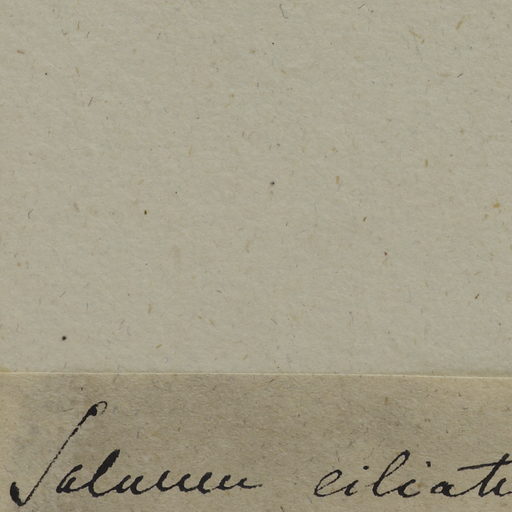 Solanum ciliatu